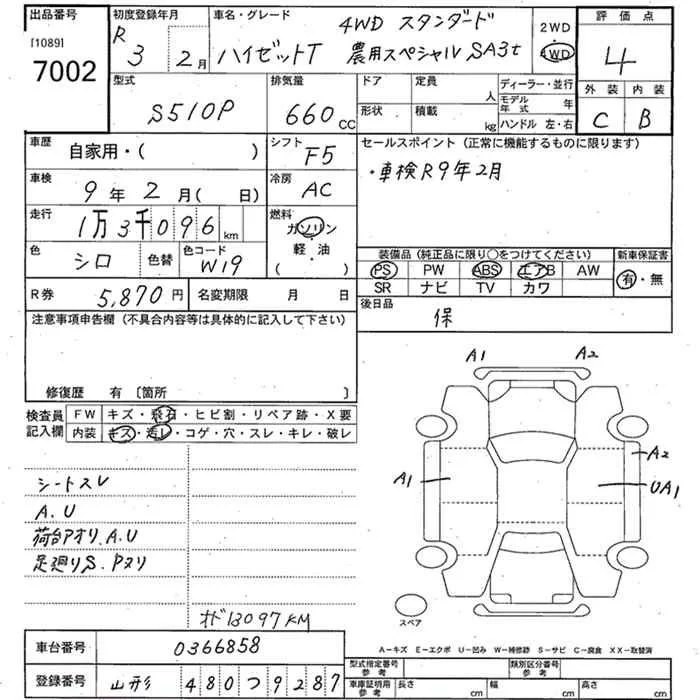 出品番号
[1089]
7002
初度登録年月
R 3 2月
車名・グレード
4WD スタンダード
ハイゼットT 農用スペシャル SA3t
2WD
4WD
評価点
4
外装 内装
C B
型式
S510P
排気量
660 cc
ドア 定員 人
形状 積載 kg
ディーラー・並行
モデル年式 年
ハンドル 左・右
車歴
自家用・( )
シフト
F5
車検
9年2月( 日)
冷房
AC
走行
1万3千096 km
燃料
ガソリン
・
軽・油
( )
色
シロ
色替
色コード
W19
R券 5,870円
名変期限 月 日
セールスポイント (正常に機能するものに限ります)
・車検R9年2月
装備品 (純正品に限り○をつけてください)
PS PW ABS エアB AW
SR ナビ TV カワ
新車保証書
有・無
後日品
保
注意事項申告欄 (不具合内容等は具体的に記入して下さい)
修復歴 有 〔箇所 〕
検査員記入欄
FW キズ・飛石・ヒビ割・リペア跡・X要
内装 キズ・汚レ・コゲ・穴・スレ・キレ・破レ
シートスレ
A.U
荷台アオリ.A.U
足廻りS.Pヌリ
オド13097KM
A1 A2
A1
A2
UA1
スペア
A-キズ E-エクボ U-凹み W-補修跡 S-サビ C-腐食 XX-取替済
車台番号 0366858
登録番号 山形 480つ9287
型式指定番号 参考
類別区分番号 参考
車庫証明用 参考
長さ cm 幅 cm 高さ cm